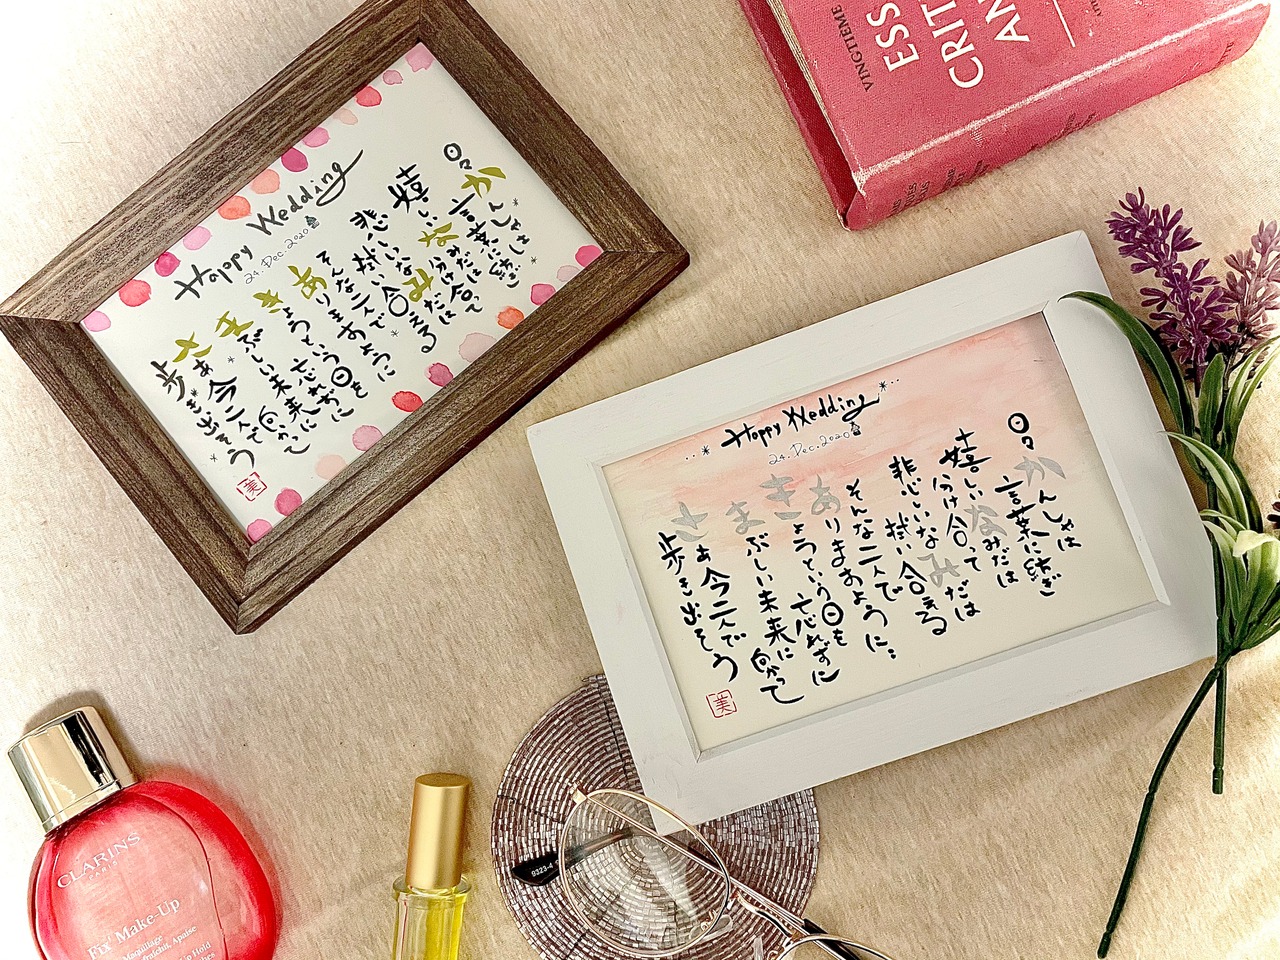 Happy Wedding
24. Dec. 2020
日々かんしゃは
言葉に紡ぎ
嬉しいなみだは
分け合って
悲しいなみだは
拭い合える
そんな二人で
ありますように
きょうという日を
忘れずに
まぶしい未来に
向かって
さぁ今二人で
歩き出そう
美
VINGTIEME
ESS
CRIT
AN
Happy Wedding
24. Dec. 2020
日々かんしゃは
言葉に紡ぎ
嬉しいなみだは
分け合って
悲しいなみだは
拭い合える
そんな二人で
ありますように…
きょうという日を
忘れずに
まぶしい未来に
向かって
さぁ今二人で
歩き出そう
美
CLARINS
PARIS
Fix' Make-Up
Maquillage
fraîchit, Apaise
Up Hold
9323-4